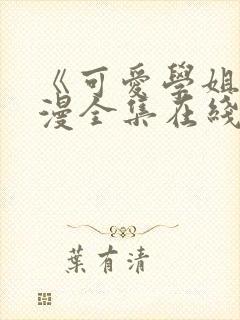 《可愛學姐
漫全集在綫
葉有清